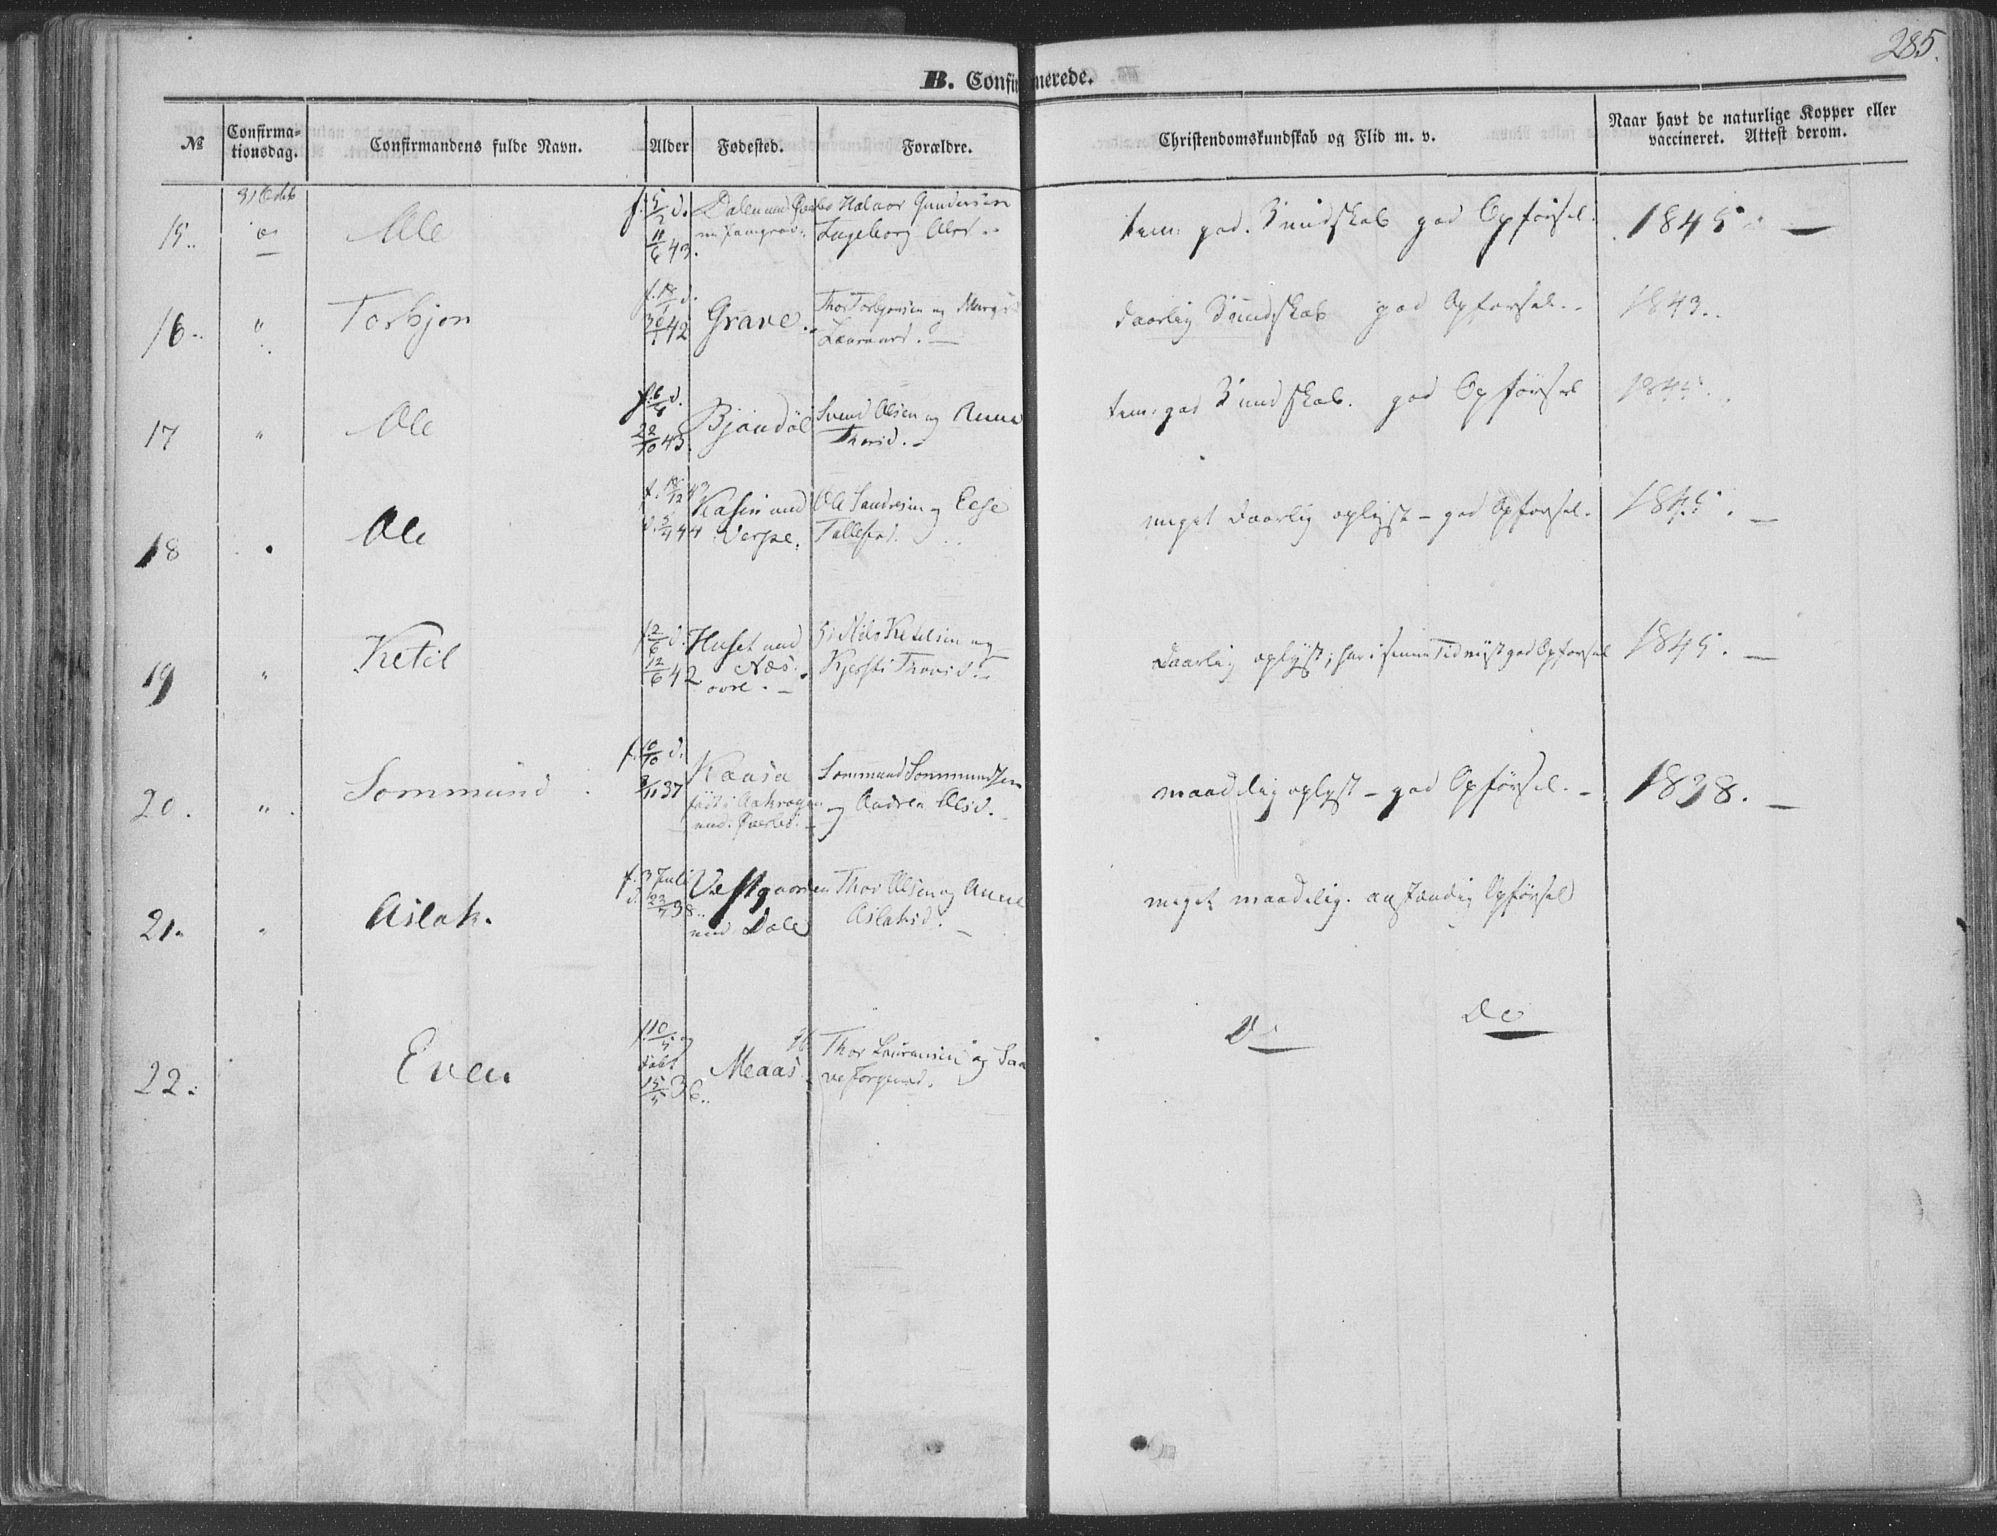 285.
B. Confirmerede.
№ Confirma-tionsdag. Confirmandens fulde Navn. Alder Fødested. Forældre. Christendomskundskab og Flid m. v. Naar havt de naturlige Kopper eller vaccineret. Attest derom.
15. Ole 11/6 43. Dalen Halvor Gundersen
Ingeborg Olsd. tem: god Kundskab god Opførsel. 1845. —
16. " Torbjøn f. 18/1 d. 42 Grave. Thor Torbjønsen og Margit daarlig Kundskab god Opførsel. 1843.
17 " Ole f. 6/9 d. 22/10 43. Bjaadøl Svend Olsen og Anne
Thorsd. tem: god Kundskab. god Opførsel 1845.
18 Ole 44 Kasin und Verpe. Ole Sandresen og
Tallefsd. meget daarlig oplyst – god Opførsel. 1845. —
19 " Ketil f. 2/6 d. 12/6 42 Huset und Næs øvre. Nils Ketilsen og
Kjersti Thorsd. daarlig oplyst; har i senere Tid viist god Opførsel 1845. —
20. " Sommund f. 10/10 d. 37 Kaasa Sommund Sommundsen
født i
og Andrea Olsd. maadelig oplyst – god Opførsel. 1838. —
21. " Aslak. f. 3 Juli d. 22/7 38. Vestgaarden und. Dale Thor Olsen og Anne
Aslaksd. meget maadelig. anstændig Opførsel
22. Even f. 10/5 og døbt 15/5 36. Meaas. Thor Lauransen og
Torgrimsd. Do Do